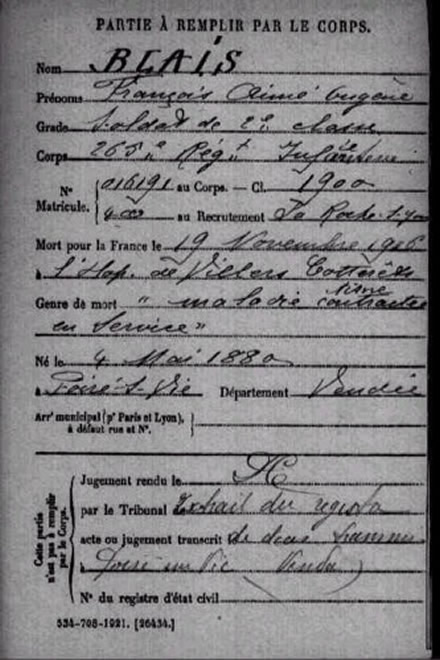 PARTIE À REMPLIR PAR LE CORPS.
Nom BLAIS
Prénoms François Aimé Eugène
Grade Soldat de 2e classe
Corps 265e Régt Infanterie
N° Matricule. 016191 au Corps. — Cl. 1900
au Recrutement La Roche-s-Yon
Mort pour la France le 19 Novembre 1916
à l'Hop. de Villers Cotterêts
Genre de mort " maladie contractée
en Service "
Né le 4 Mai 1880
à Poiré-s-Vie Département Vendée
Arrt municipal (pr Paris et Lyon), à défaut rue et N°.
Cette partie n'est pas à remplir par le Corps.
Jugement rendu le
par le Tribunal Extrait du registre
acte ou jugement transcrit de
à Poiré sur Vie Vendée
N° du registre d'état civil
534-708-1921. [26434.]